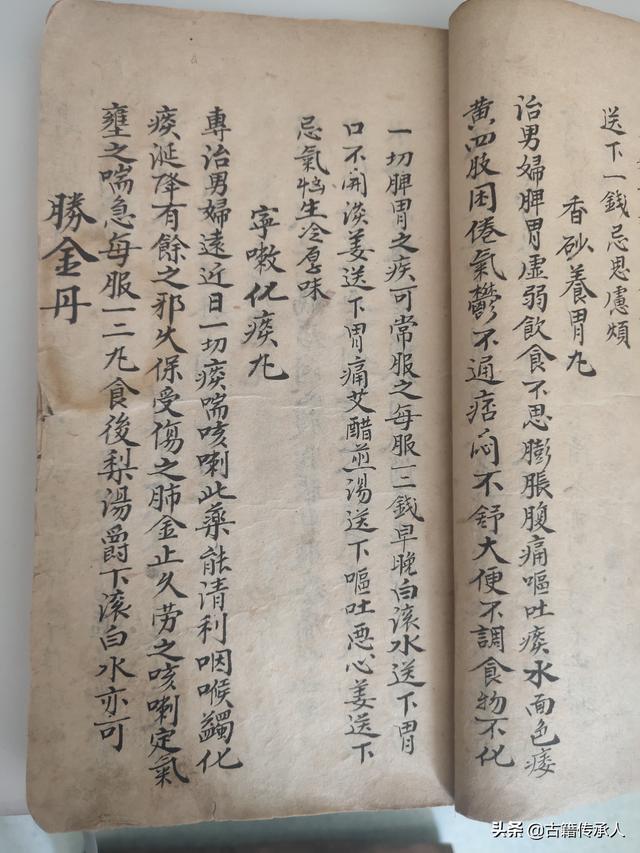 送下一錢忌思慮煩
香砂養胃丸
治男婦脾胃虛弱飲食不思膨脹腹痛嘔吐痰水面色痿
黄四肢困倦氣鬱不通痞悶不舒大便不調食物不化
一切脾胃之疾可常服之每服一二錢早晚白滚水送下胃
口不開淡姜送下胃痛艾醋煎湯送下嘔吐恶心姜送下
忌氣惱生冷厚味
寧嗽化痰丸
專治男婦遠近日一切痰喘咳喇此藥能清利咽喉蠲化
痰涎降有餘之邪火保受傷之肺金止久劳之咳喇定氣
壅之喘急每服一二丸食後梨湯爵下滚白水亦可
勝金丹
头条 @古籍传承人